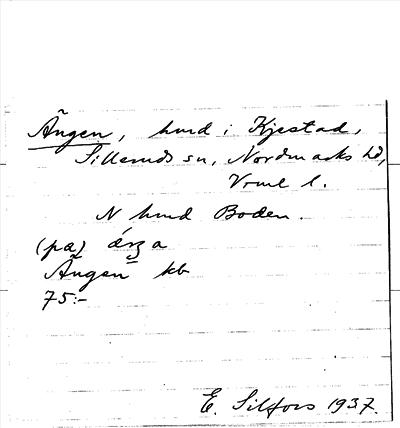 Ängen, hmd i Kjestad,
Silleruds sn, Nordmarks hd,
Vrml l.
N hmd Boden.
(pa)
Ängen kb
75:-
E. Silfors 1937.